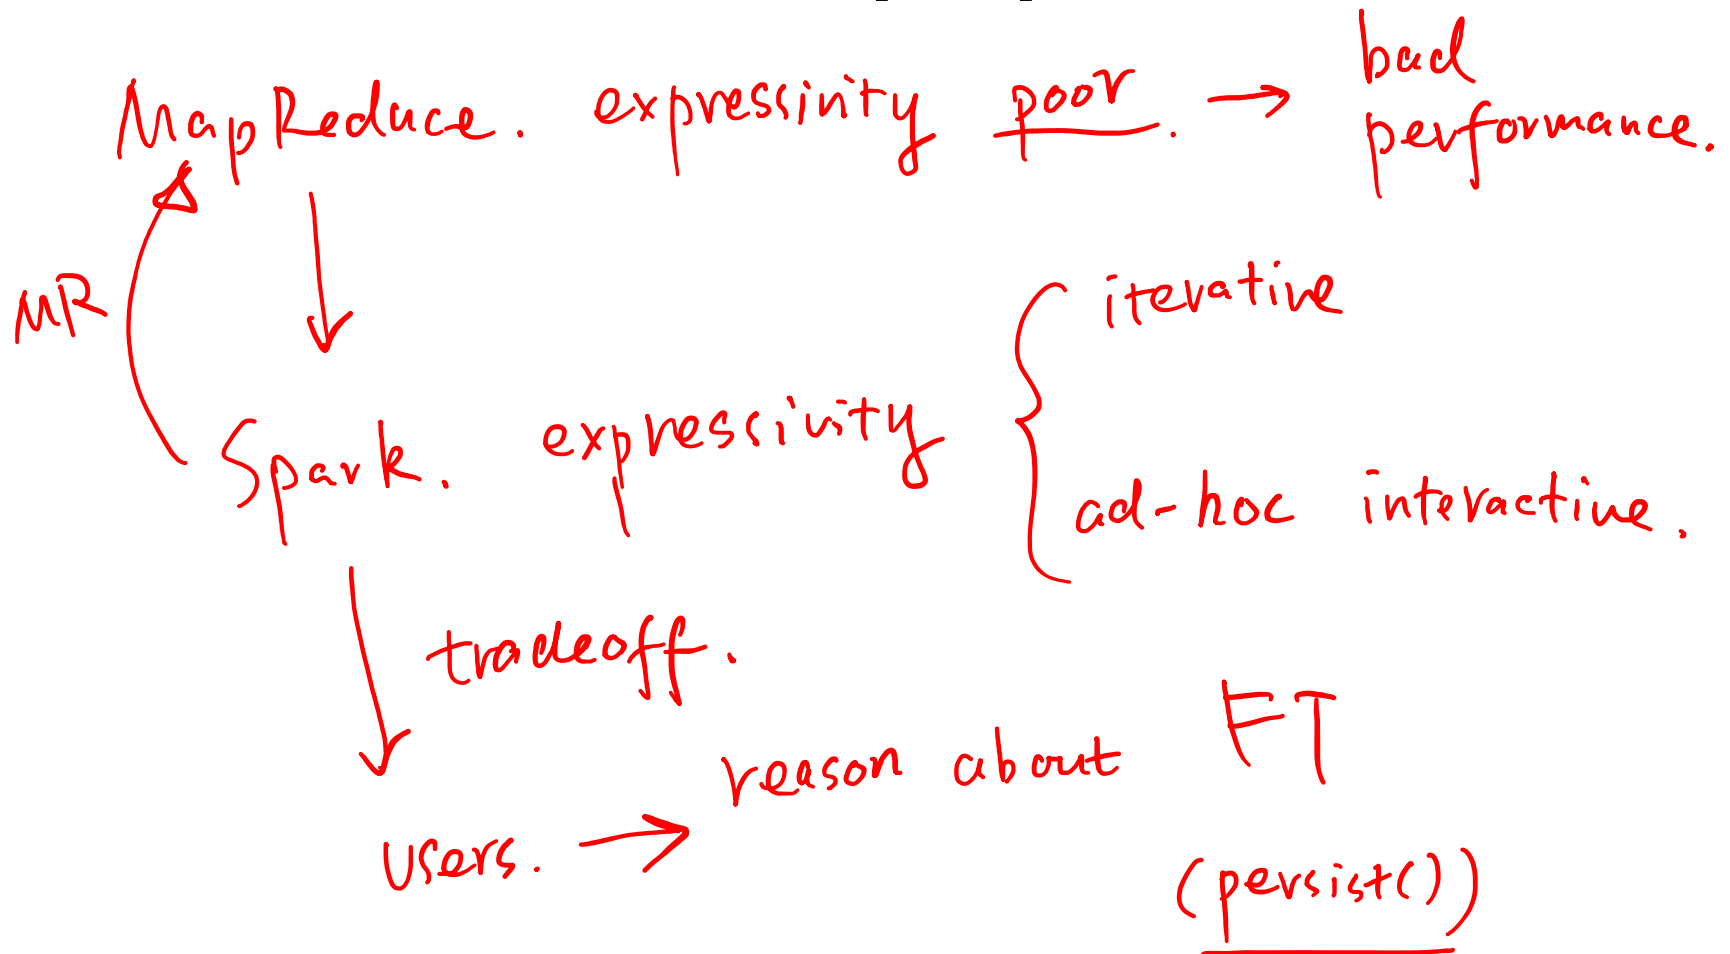 MapReduce. expressivity poor. → bad
performance.
MR
iterative
Spark. expressivity
ad-hoc interactive.
tradeoff.
users. → reason about FT
(persist())